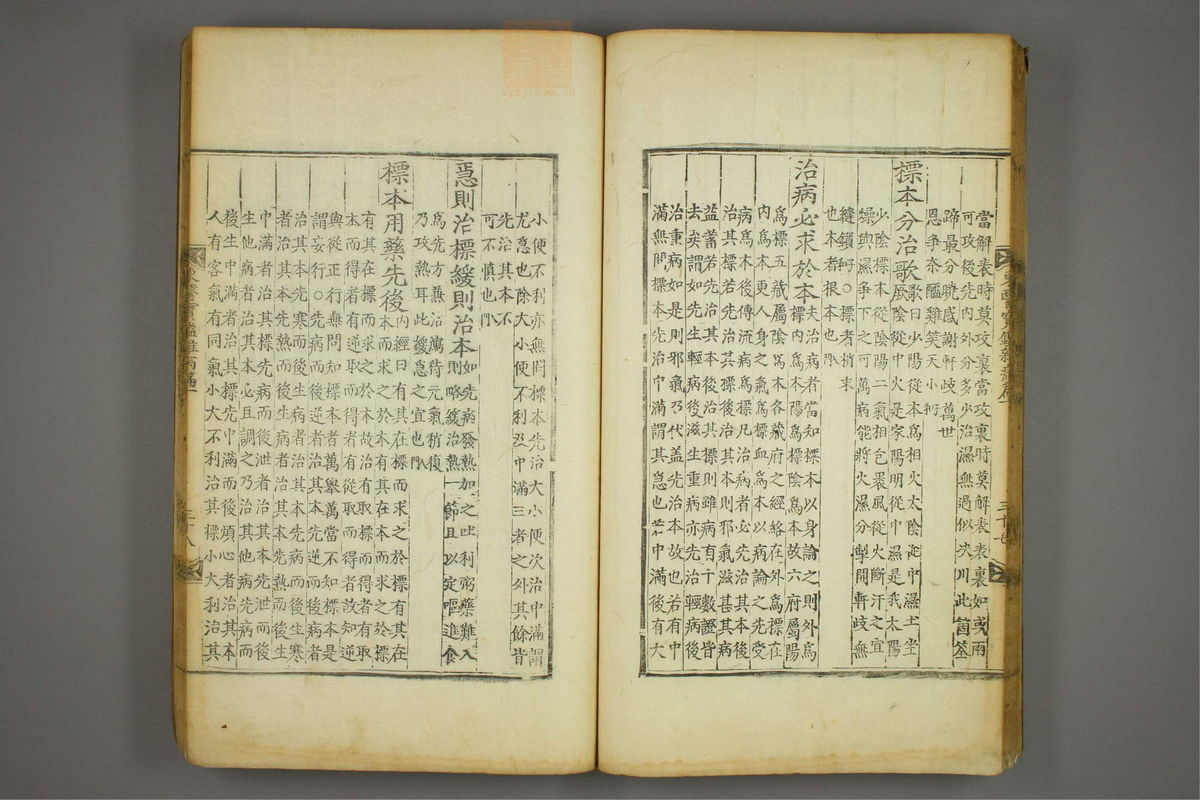 當解表時莫攻裏當攻裏時莫解表表裏如或兩
可攻後先內外分多少治濕無過似決川此箇筌
蹄最分曉感謝軒歧萬世
恩爭奈醯雞笑天小
標本分治歌 歌曰少陽從本爲相火太陰從本濕土坐
厥陰從中火是家陽明從中濕是我太陽
少陰標本從陰陽二氣相包裹風從火斷汗之宜
燥與濕爭下之可萬病能將火濕分掣開軒歧無
縫鎖○標者梢末
也本者根本也
治病必求於本 夫治病者當知標本以身論之則外爲
標內爲本陽爲標陰爲本故六府屬陽
爲標五藏屬陰爲本各藏府之經絡在外爲標在
內爲本更人身之氣爲標血爲本以病論之先受
病爲本後傳流病爲標凡治病者必先治其本後
治其標若先治其標後治其本則邪氣滋甚其病
益蓄若先治其本後治其標則雖病有十數證皆
去矣謂如先生輕病後滋生重病亦先治輕病後
治重病如是則邪氣乃伏盖先治本故也若有中
滿無問標本先治中滿謂其急也若中滿後有大
東醫寶鑑雜病篇一
三十七
小便不利亦無問標本先治大小便次治中滿謂
尤急也除大小便不利及中滿三者之外其餘皆
先治其本不
可不愼也
急則治標緩則治本 如先病發熱加之吐利粥藥難入
則略緩治熱一節且以定嘔進食
爲先方兼治瀉待元氣稍復
乃攻熱耳此緩急之宜也入門
標本用藥先後 內經曰有其在標而求之於標有其在
本而求之於本有其在本而求之於標
有其在標而求之於本故治有取標而得者有取
本而得者有逆取而得者有從取而得者故知逆
與從正行無問知標本者萬擧萬當不知標本是
謂妄行○先病而後逆者治其本先逆而後病者
治其本先寒而後生病者治其本先病而後生寒
者治其本先熱而後生病者治其本先熱而後生
中滿者治其標先病而後泄者治其本先泄而後
生他病者治其本必且調之乃治其他病先病而
後生中滿者治其標先中滿而後煩心者治其本
人有客氣有同氣小大不利治其標小大利治其
東醫寶鑑雜病篇一
三十八